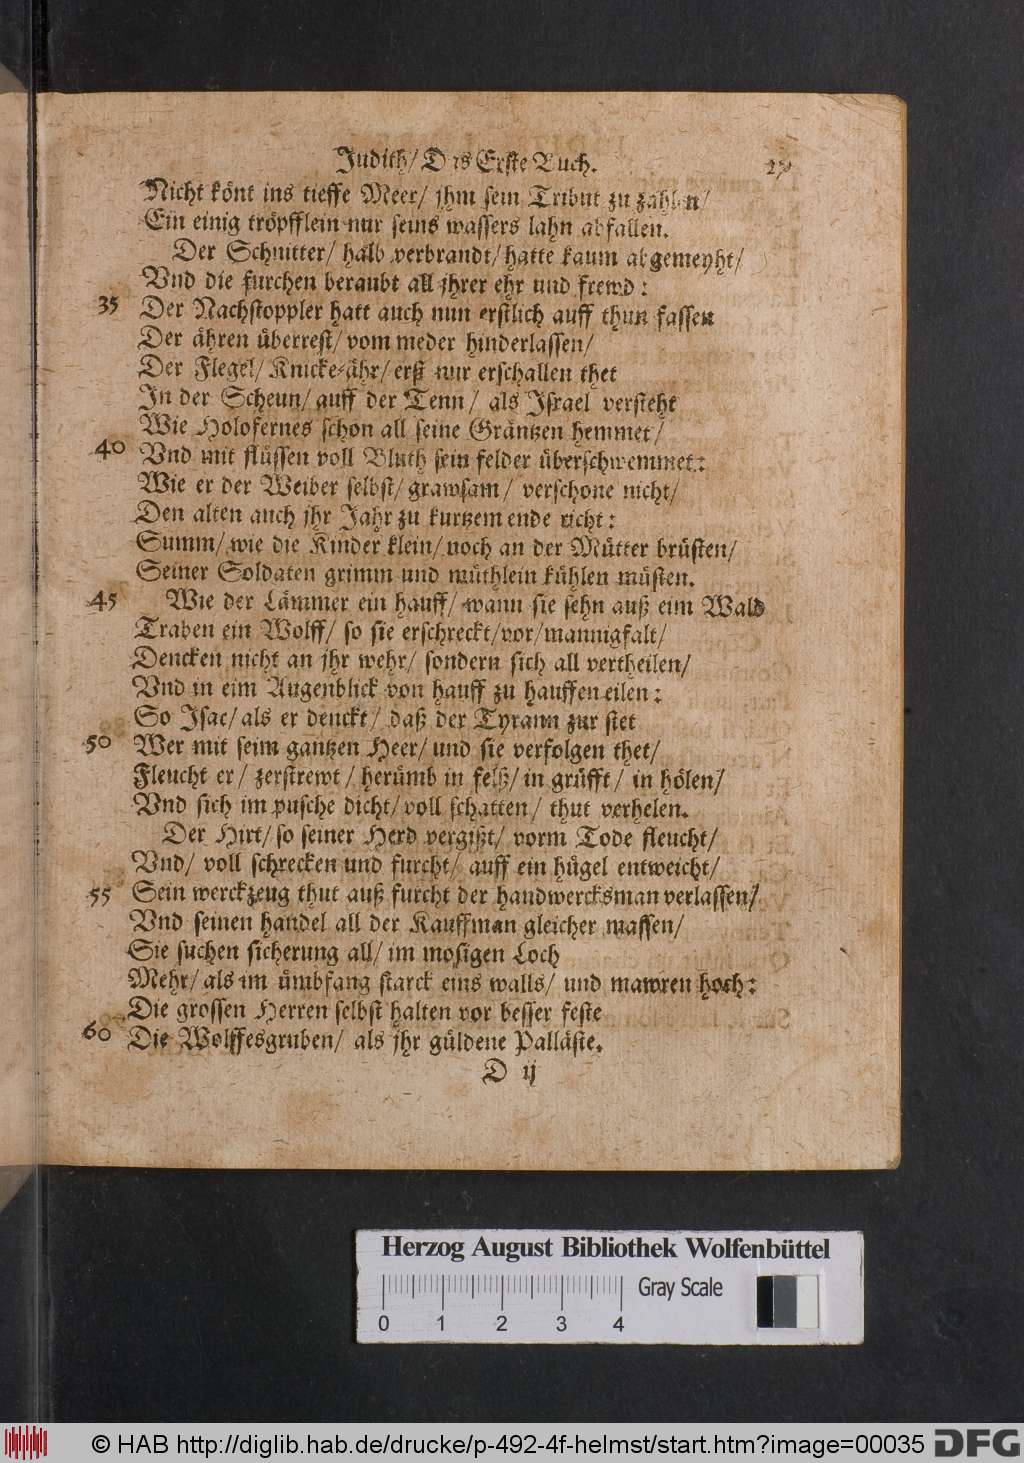 Judith/ Das Erste Buch. 27
Nicht könt ins tieffe Meer/ jhm sein Tribut zu zahlen/
Ein einig tröpfflein nur seins wassers lahn abfallen.
Der Schnitter/ halb verbrandt/ hatte kaum abgemeyht/
Vnd die furchen beraubt all jhrer ehr und frewd:
35 Der Nachstoppler hatt auch nun erstlich auff thun fassen
Der ähren überrest/ vom meder hinderlassen/
Der Flegel/ Knicke-ähr/ erst nur erschallen thet
In der Scheun/ auff der Tenn/ als Israel versteht
Wie Holofernes schon all seine Gräntzen hemmet/
40 Vnd mit flüssen voll Bluth sein felder überschwemmet:
Wie er der Weiber selbst/ grawsam/ verschone nicht/
Den alten auch jhr Jahr zu kurtzem ende richt:
Summ/ wie die Kinder klein/ noch an der Mütter brüsten/
Seiner Soldaten grimm und müthlein kühlen müsten.
45 Wie der Lämmer ein hauff/ wann sie sehn auß eim Wald
Traben ein Wolff/ so sie erschreckt/ vor/ mannigfalt/
Dencken nicht an jhr wehr/ sondern sich all vertheilen/
Vnd in eim Augenblick von hauff zu hauffen eilen:
So Isac/ als er denckt/ daß der Tyrann zur stet
50 Wer mit seim gantzen Heer/ und sie verfolgen thet/
Fleucht er/ zerstrewt/ herümb in felß/ in grüfft/ in hölen/
Vnd sich im pusche dicht/ voll schatten/ thut verhelen.
Der Hirt/ so seiner Herd vergißt/ vorm Tode fleucht/
Vnd/ voll schrecken und furcht/ auff ein hügel entweicht/
55 Sein werckzeug thut auß furcht der handwercksman verlassen/
Vnd seinen handel all der Kauffman gleicher massen/
Sie suchen sicherung all/ im mosigen Loch
Mehr/ als im ümbfang starck eins walls/ und mawren hoch:
Die grossen Herren selbst halten vor besser feste
60 Die Wolffesgruben/ als jhr güldene Palläste.
D ij
Herzog August Bibliothek Wolfenbüttel
Gray Scale
0 1 2 3 4
© HAB http://diglib.hab.de/drucke/p-492-4f-helmst/start.htm?image=00035 DFG